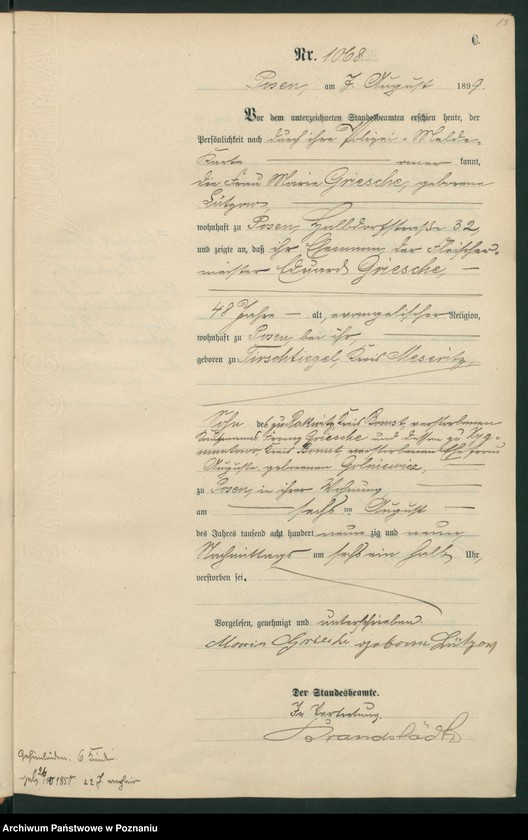 13
C.
Nr. 1068
Posen, am 7. August 1899.
Vor dem unterzeichneten Standesbeamten erschien heute, der
Persönlichkeit nach durch ihre Polizei-Melde-
karte anerkannt,
die Frau Marie Griesche, geborene
Lützow,
wohnhaft zu Posen, Halbdorfstraße 32,
und zeigte an, daß ihr Ehemann, der Fleischer-
meister Eduard Griesche,
48 Jahre alt, evangelischer Religion,
wohnhaft zu Posen, bei ihr,
geboren zu Tirschtiegel, Kreis Meseritz,
Sohn des zu Rakwitz, Kreis Bomst, verstorbenen
Griesche und dessen zu
Kreis Bomst, verstorbenen Ehefrau
Auguste, geborenen
zu Posen, in ihrer Wohnung,
am sechsten August
des Jahres tausend acht hundert neunzig und neun,
Nachmittags um sechs ein halb Uhr,
verstorben sei.
Vorgelesen, genehmigt und unterschrieben.
Marie Griesche geborne Lützow
Der Standesbeamte.
In Vertretung.
Brandstädt
6 Kinder
1850
Archiwum Państwowe w Poznaniu